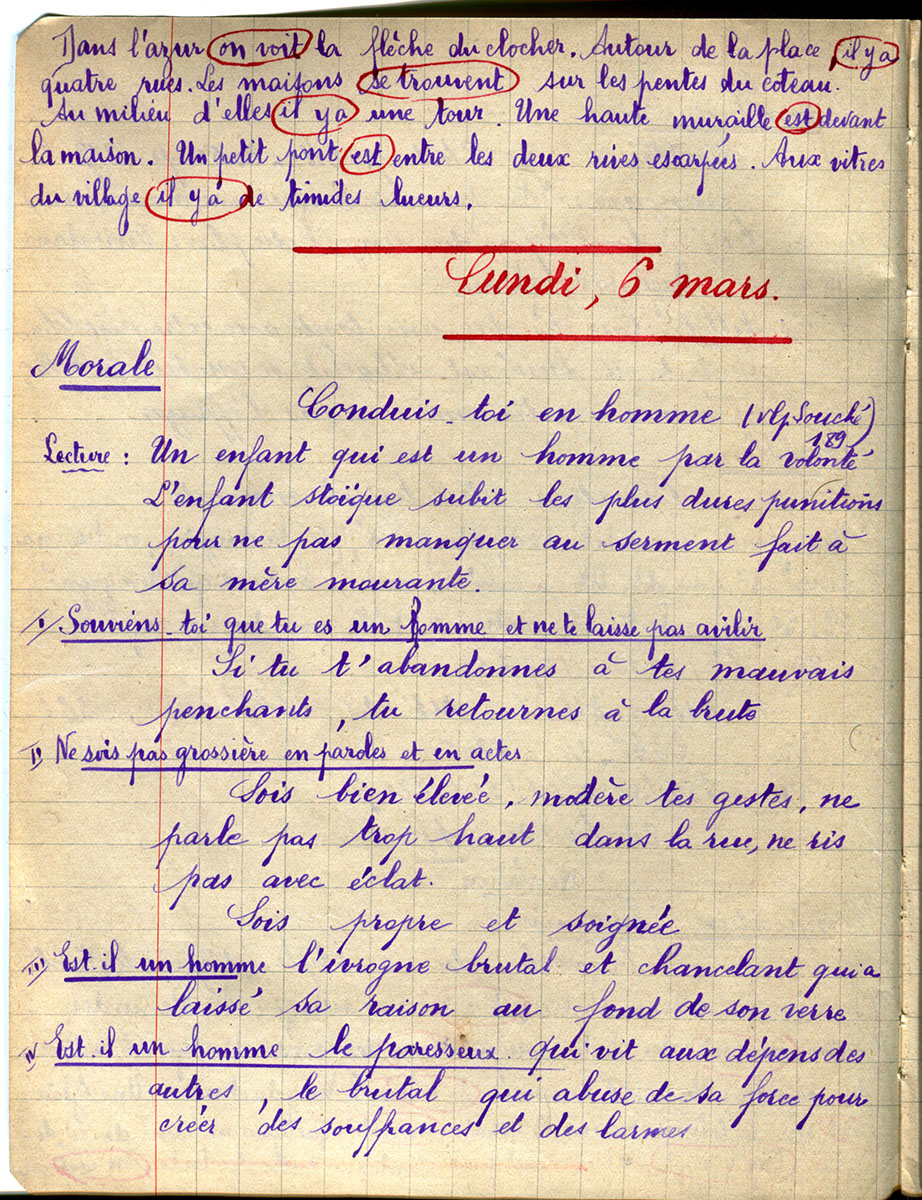 Dans l'azur on voit la flèche du clocher. Autour de la place, il y a
quatre rues. Les maisons se trouvent sur les pentes du coteau.
Au milieu d'elles il y a une tour. Une haute muraille est devant
la maison. Un petit pont est entre les deux rives escarpées. Aux vitres
du village il y a de timides lueurs.
Lundi, 6 mars.
Morale
Conduis-toi en homme (vlp Souché)
189
Lecture : Un enfant qui est un homme par la volonté
L'enfant stoïque subit les plus dures punitions
pour ne pas manquer au serment fait à
sa mère mourante.
I/ Souviens-toi que tu es un homme et ne te laisse pas avilir
Si tu t'abandonnes à tes mauvais
penchants, tu retournes à la brute
II/ Ne sois pas grossière en paroles et en actes
Sois bien élevée, modère tes gestes, ne
parle pas trop haut dans la rue, ne ris
pas avec éclat.
Sois propre et soignée
III/ Est-il un homme l'ivrogne brutal et chancelant qui a
laissé sa raison au fond de son verre
IV/ Est-il un homme le paresseux qui vit aux dépens des
autres, le brutal qui abuse de sa force pour
créer des souffrances et des larmes